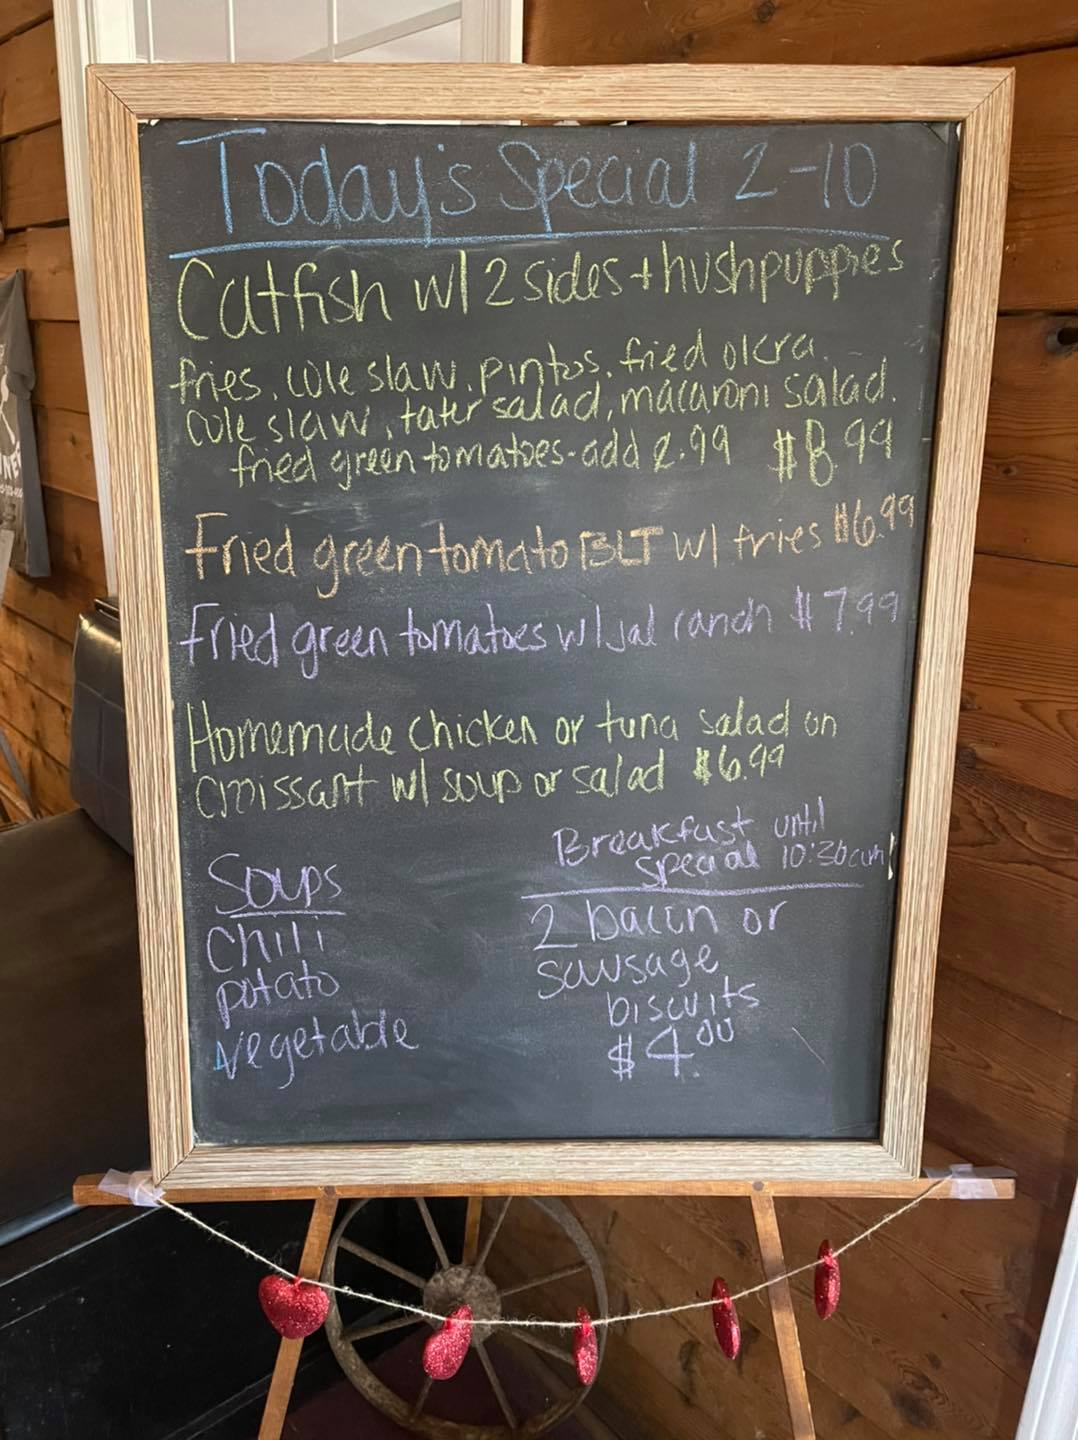 Today's Special 2-10
Catfish w/ 2 sides + hushpuppies
fries, cole slaw, pintos, fried okra,
cole slaw, tater salad, macaroni salad.
fried green tomatoes - add 2.99 $8.99
Fried green tomato BLT w/ fries $6.99
Fried green tomatoes w/ Jal ranch $7.99
Homemade chicken or tuna salad on
croissant w/ soup or salad $6.99
Breakfast until
special 10:30am!
Soups
Chili
potato
Vegetable
2 bacon or
sausage
biscuits
$4.00